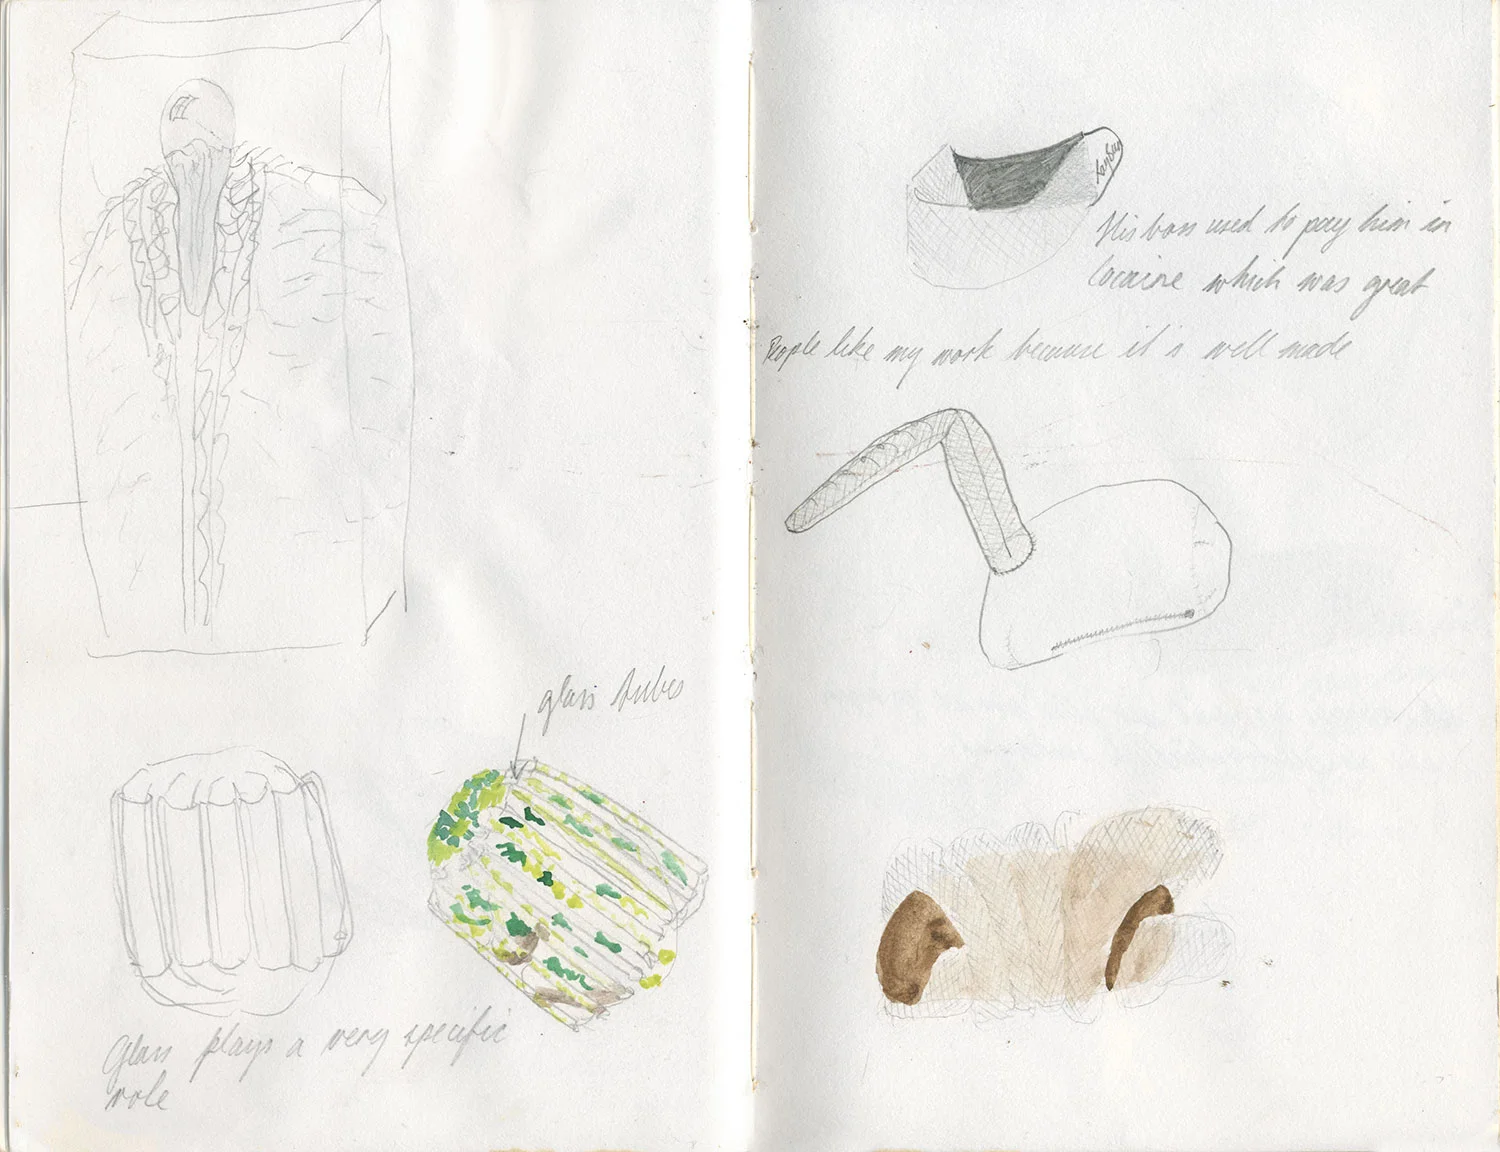 glass tubes
Glass plays a very specific
role
His boss used to pay him in
Cocaine which was great
People like my work because it is well made